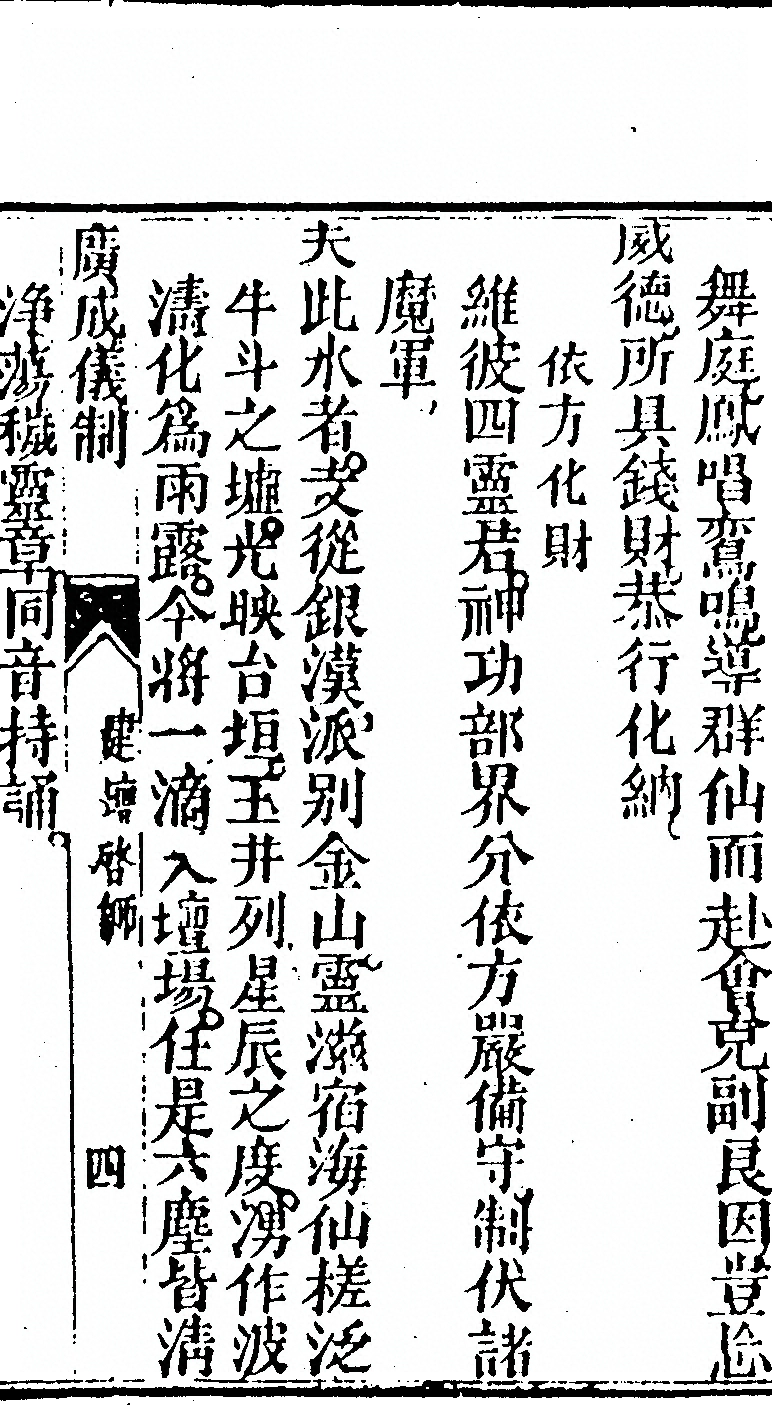 舞庭鳳唱鸞鳴導群仙而赴會克副良因豈忘
威德所具錢財恭行化納
依方化財
維彼四靈君神功部界分依方嚴備守制伏諸
魔軍
夫此水者爰從銀漢派别金山靈滋宿海仙槎泛
牛斗之墟光映台垣玉井列星辰之度湧作波
濤化爲雨露今將一滴入壇場任是六塵皆清
廣成儀制
建壇啓師
四
淨蕩穢靈章同音持誦